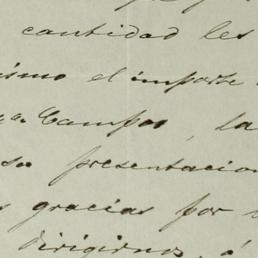 cantidad les
ismo el importe
Campos, la
su presentacion
gracias por
dirigirnos, á